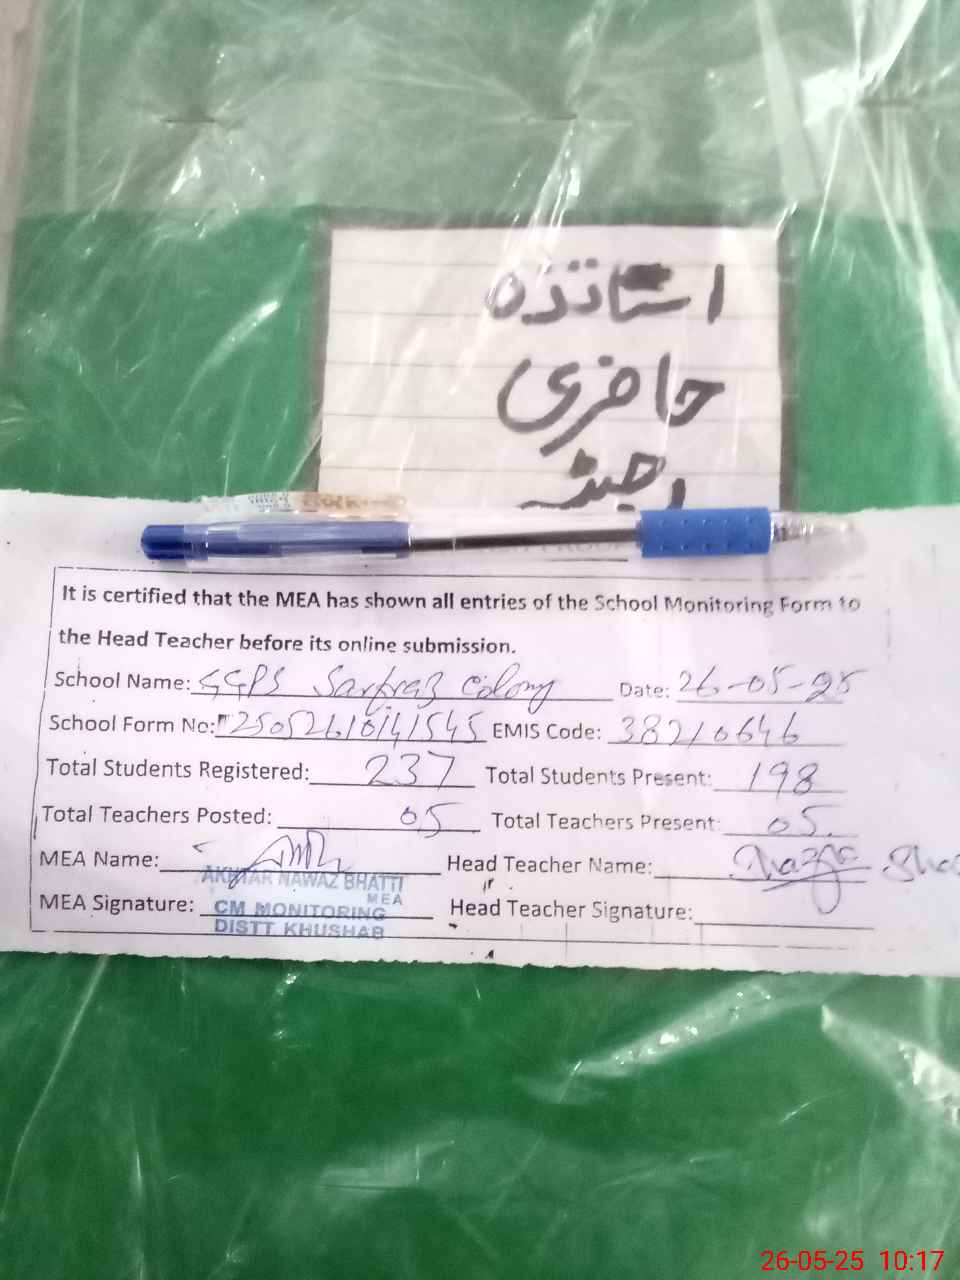 استاتذہ
حاضری
رجسٹر
It is certified that the MEA has shown all entries of the School Monitoring Form to
the Head Teacher before its online submission.
School Name: GGPS Sarfraz Colony Date: 26-05-25
School Form No: 25052610141545 EMIS Code: 38210646
Total Students Registered: 237 Total Students Present: 198
Total Teachers Posted: 05 Total Teachers Present: 05.
MEA Name: Head Teacher Name:
AKHTAR NAWAZ BHATTI
MEA
MEA Signature: CM MONITORING Head Teacher Signature:
DISTT KHUSHAB
26-05-25 10:17